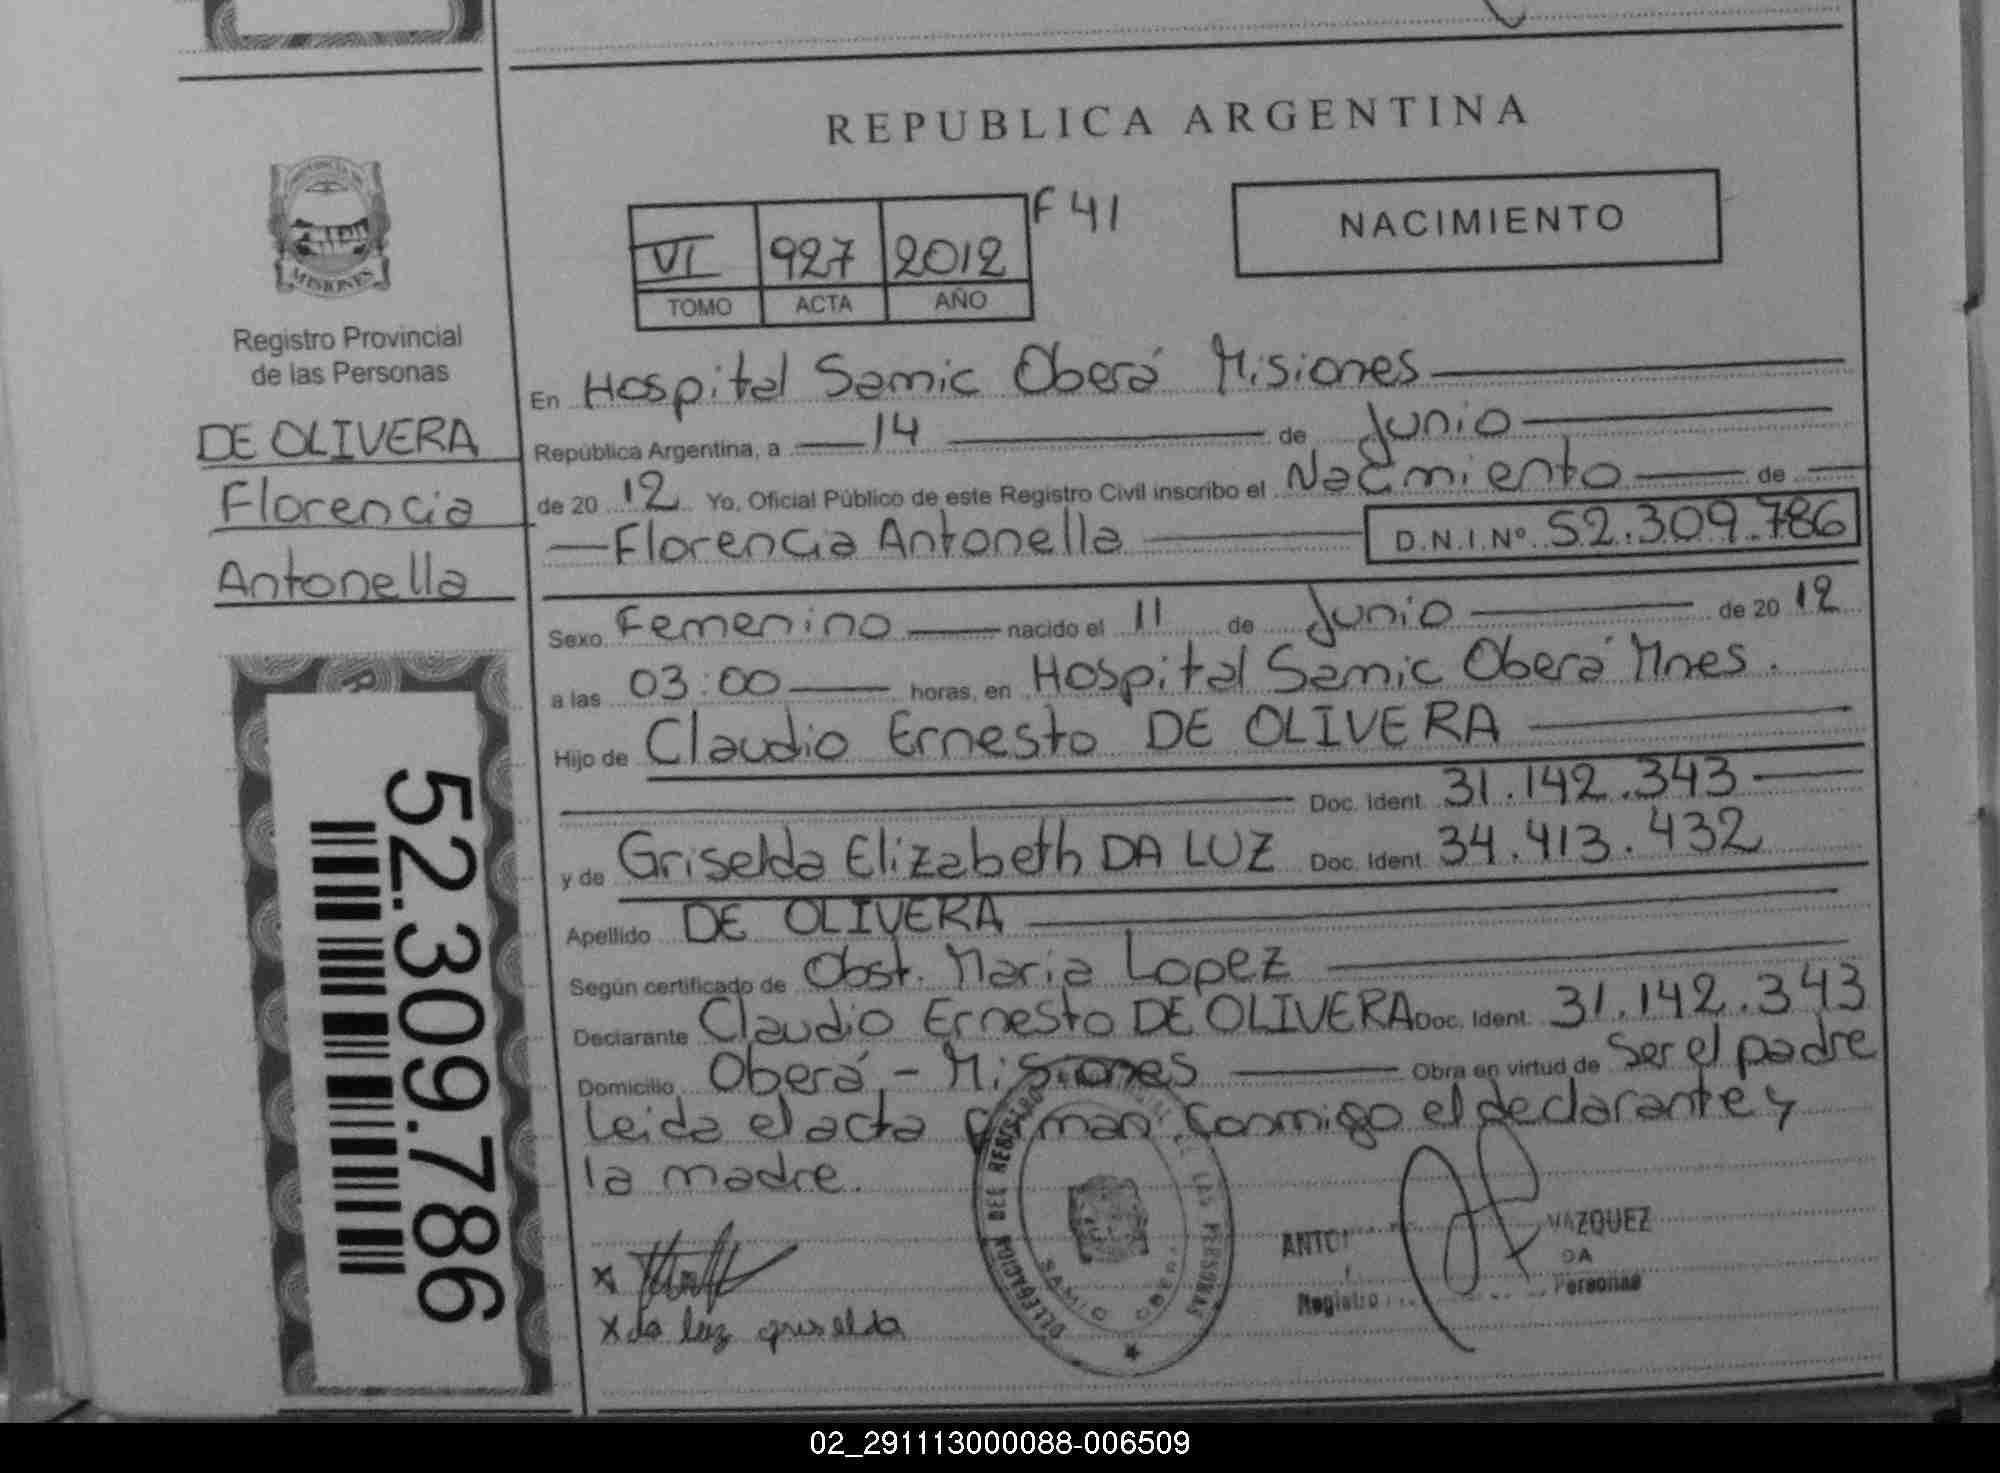 REPUBLICA ARGENTINA
F 41
NACIMIENTO
VI 927 2012
TOMO ACTA AÑO
MISIONES
Registro Provincial
de las Personas
DE OLIVERA
Florencia
Antonella
52.309.786
En Hospital Samic Oberá Misiones
República Argentina, a 14 de Junio
de 20 12 Yo, Oficial Público de este Registro Civil inscribo el Nacimiento de
Florencia Antonella D.N.I.Nº 52.309.786
Sexo Femenino nacido el 11 de Junio de 20 12
a las 03:00 horas, en Hospital Samic Oberá Mnes.
Hijo de Claudio Ernesto DE OLIVERA
Doc. Ident. 31.142.343
y de Griselda Elizabeth DA LUZ Doc. Ident. 34.413.432
Apellido DE OLIVERA
Según certificado de Obst. Maria Lopez
Declarante Claudio Ernesto DE OLIVERA Doc. Ident. 31.142.343
Domicilio Oberá - Misiones Obra en virtud de Ser el padre
Leida el acta firman conmigo el declarante y
la madre.
DELEGACION DEL REGISTRO DE LAS PERSONAS
SAMIC OBERA
x
x da luz griselda
VAZQUEZ
Registro Personas
02_291113000088-006509